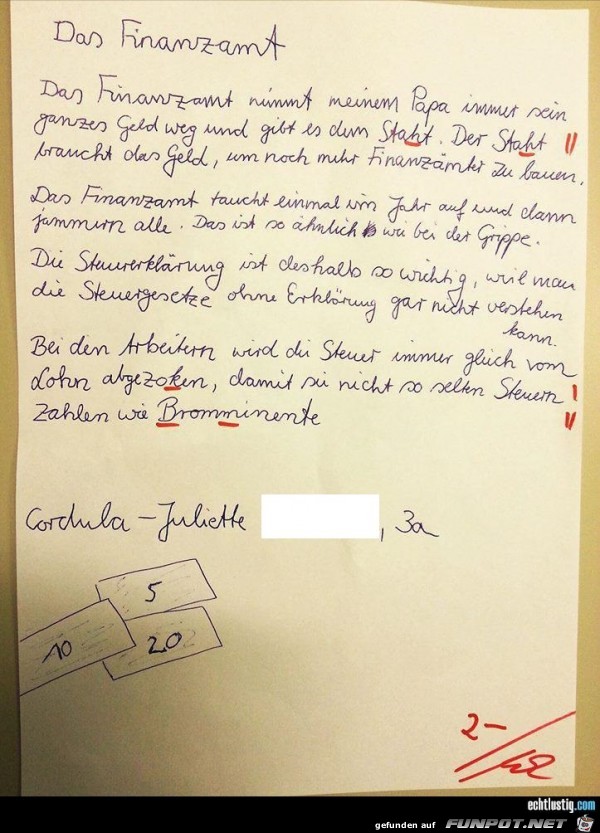 Das Finanzamt
Das Finanzamt nimmt meinem Papa immer sein
ganzes Geld weg und gibt es dem Staht. Der Staht
braucht das Geld, um noch mehr Finanzämter zu bauen.
Das Finanzamt taucht einmal im Jahr auf und dann
jammern alle. Das ist so ähnlich wie bei der Grippe.
Die Steuererklärung ist deshalb so wichtig, weil man
die Steuergesetze ohne Erklärung gar nicht verstehen
kann.
Bei den Arbeitern wird die Steuer immer gleich vom
Lohn abgezoken, damit sie nicht so selten Steuern
zahlen wie Bromminente
Cordula-Juliette , 3a
5
10
20
2-
echtlustig.com
gefunden auf FUNPOT.NET